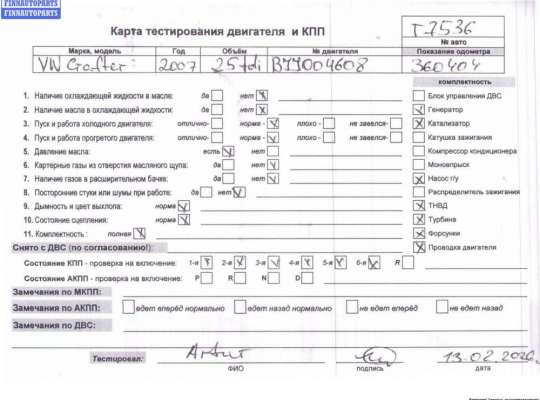 FINNAUTOPARTS
FINNAUTOPARTS
Карта тестирования двигателя и КПП
T-7536
№ авто
Марка, модель Год Объём № двигателя Показание одометра
VW Crafter 2007 2.5 tdi BJJ004608 360404
комплектность
1. Наличие охлаждающей жидкости в масле: да нет
2. Наличие масла в охлаждающей жидкости: да нет
3. Пуск и работа холодного двигателя: отлично- норма - плохо - не завелся-
4. Пуск и работа прогретого двигателя: отлично- норма - плохо - не завелся-
5. Давление масла: есть нет
6. Картерные газы из отверстия масляного щупа: да нет
7. Наличие газов в расширительном бачке: да нет
8. Посторонние стуки или шумы при работе: да нет
9. Дымность и цвет выхлопа: норма
10. Состояние сцепления: норма
11. Комплектность : полная
Блок управления ДВС
Генератор
Катализатор
Катушка зажигания
Компрессор кондиционера
Моновпрыск
Насос г/у
Распределитель зажигания
ТНВД
Турбина
Форсунки
Проводка двигателя
Снято с ДВС (по согласованию!):
Состояние КПП - проверка на включение: 1-я 2-я 3-я 4-я 5-я 6-я R
Состояние АКПП - проверка на включение: P R N D
Замечания по МКПП:
Замечания по АКПП: едет вперёд нормально едет назад нормально не едет вперёд не едет назад
Замечания по ДВС:
Тестировал: 13.02.2020.
ФИО подпись дата